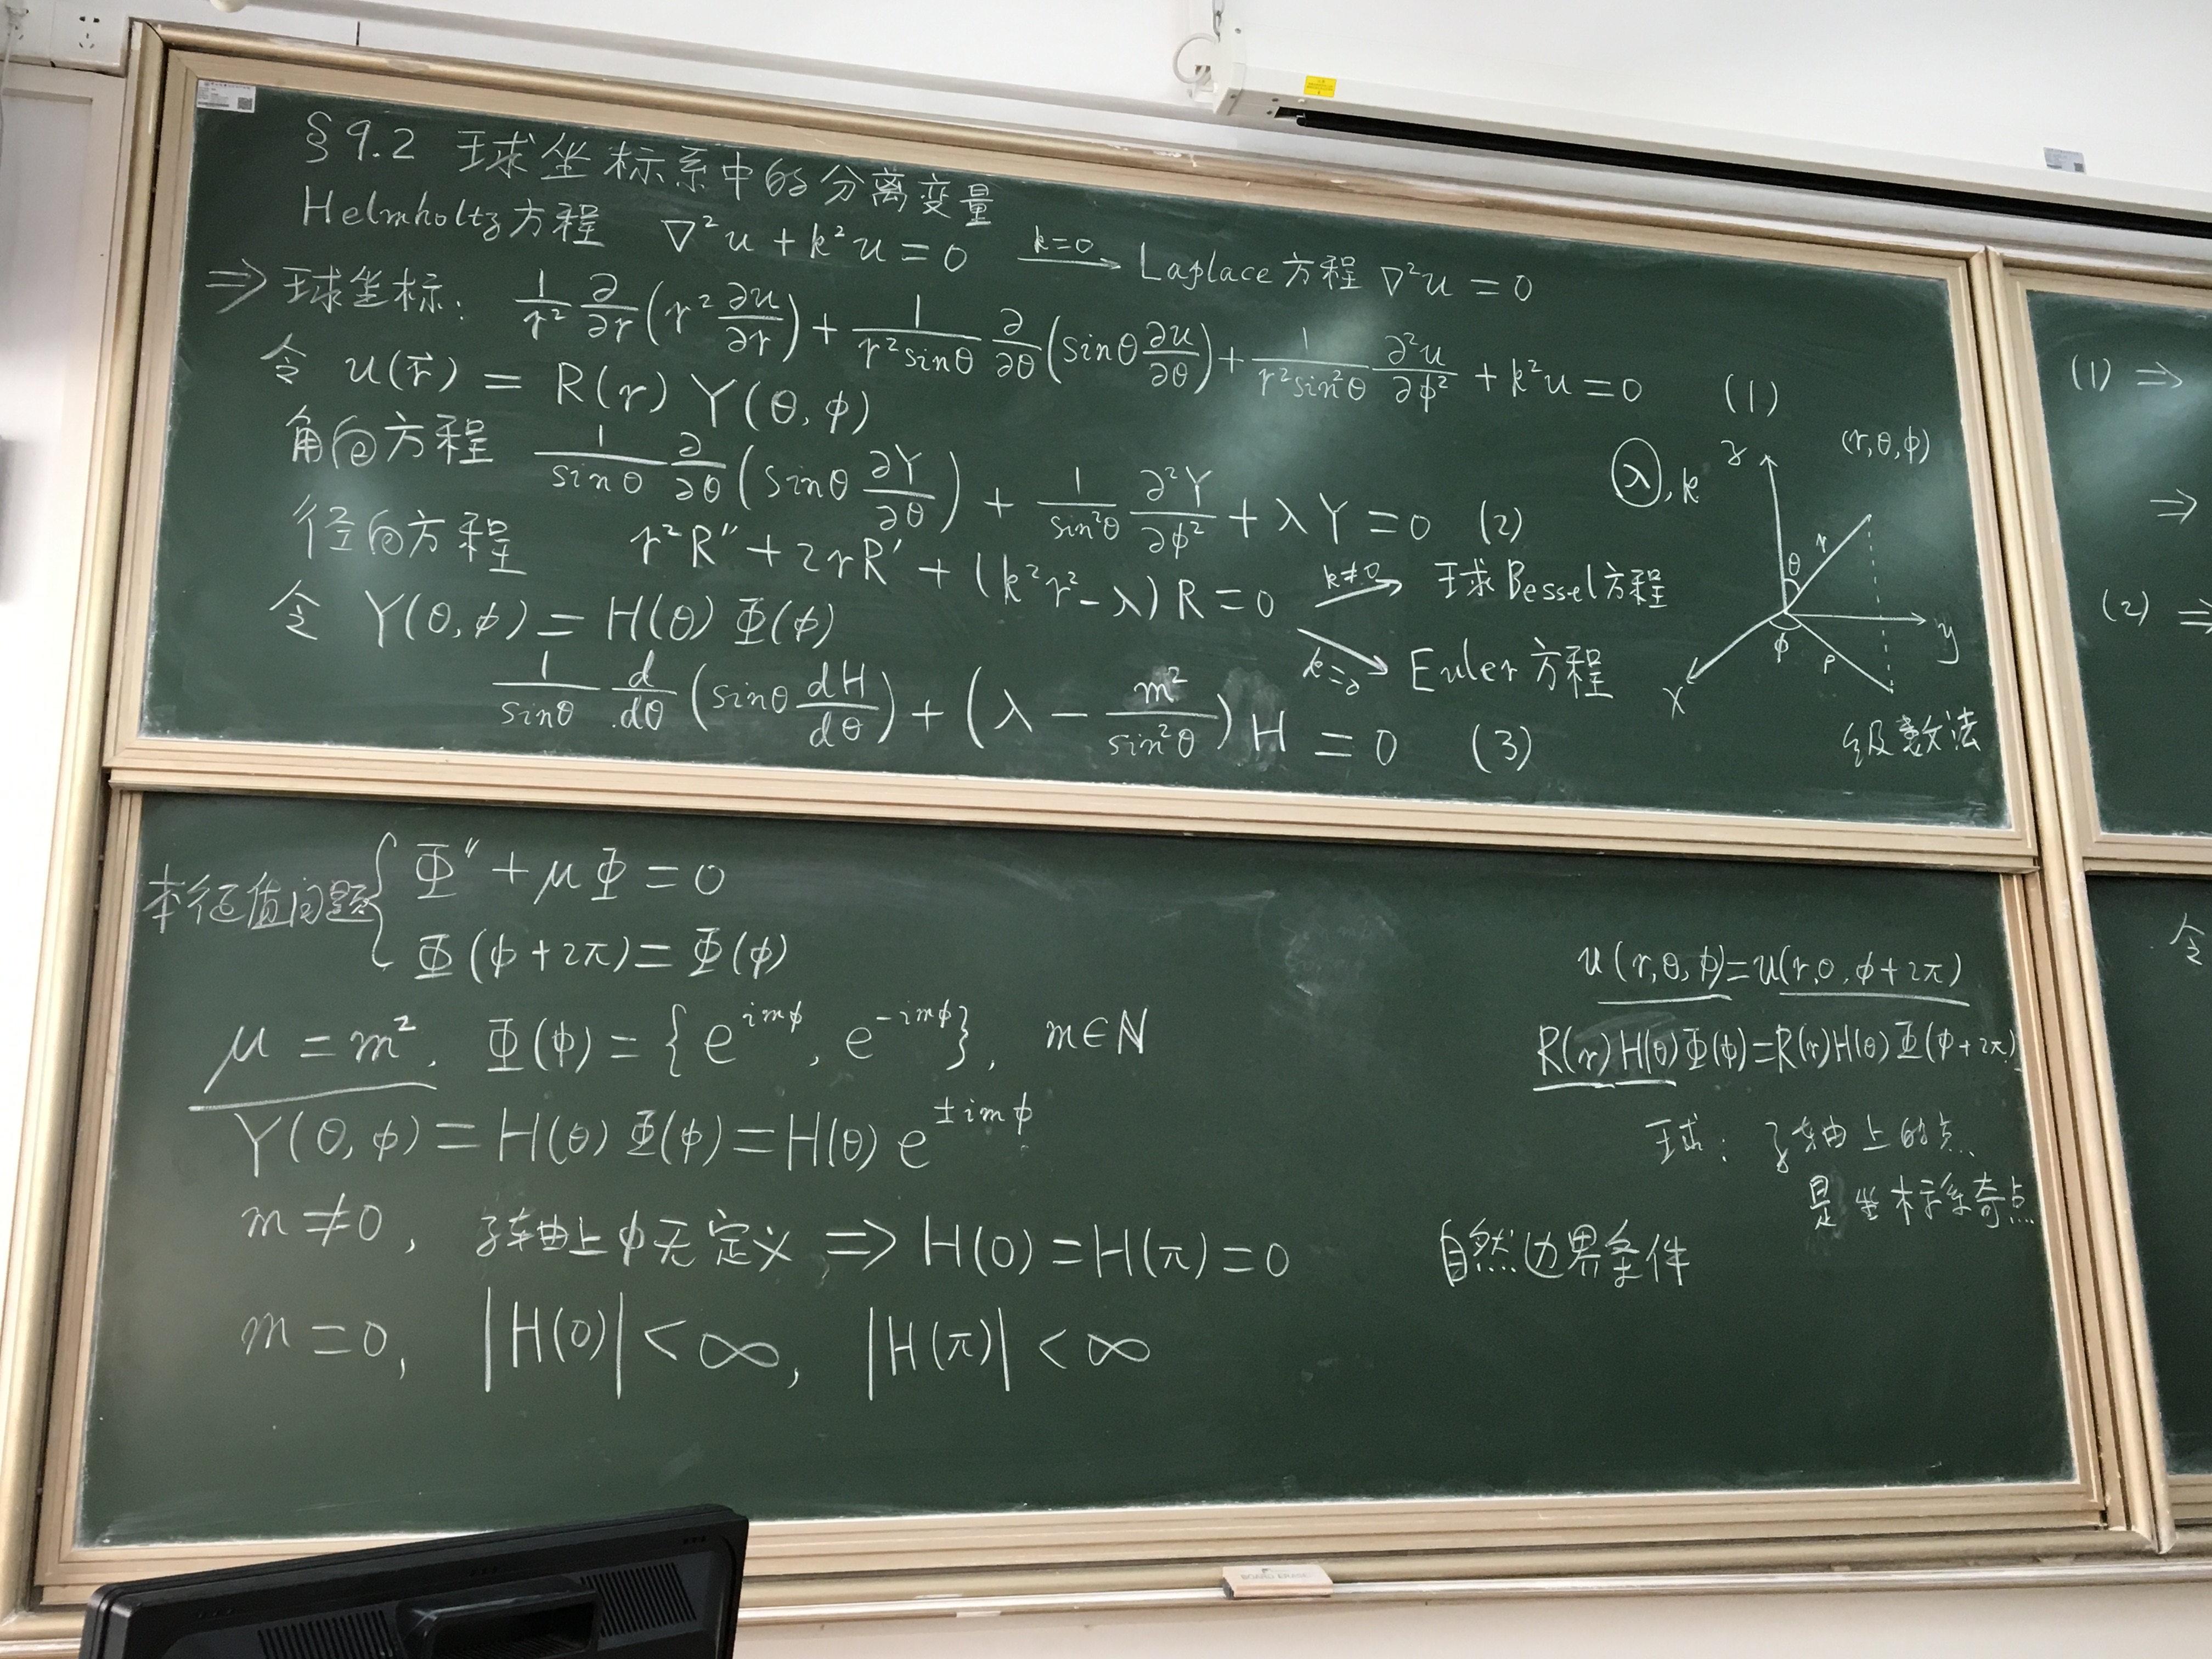 §9.2 球坐标系中的分离变量
Helmholtz方程 ∇²u + k²u = 0 —k=0→ Laplace方程 ∇²u = 0
⇒ 球坐标: 1/r² ∂/∂r (r² ∂u/∂r) + 1/(r² sinθ) ∂/∂θ (sinθ ∂u/∂θ) + 1/(r² sin²θ) ∂²u/∂φ² + k²u = 0 (1)
令 u(r⃗) = R(r) Y(θ,φ)
角向方程 1/sinθ ∂/∂θ (sinθ ∂Y/∂θ) + 1/sin²θ ∂²Y/∂φ² + λY = 0 (2)
径向方程 r²R″ + 2rR′ + (k²r² − λ)R = 0
k≠0 → 球Bessel方程
k=0 → Euler方程
令 Y(θ,φ) = H(θ) Φ(φ)
1/sinθ d/dθ (sinθ dH/dθ) + (λ − m²/sin²θ) H = 0 (3)
λ, k
(r,θ,φ)
z
r
θ
y
φ
ρ
x
级数法
本征值问题 { Φ″ + μΦ = 0
Φ(φ+2π) = Φ(φ)
μ = m², Φ(φ) = {e^{imφ}, e^{-imφ}}, m∈ℕ
Y(θ,φ) = H(θ) Φ(φ) = H(θ) e^{±imφ}
m≠0, z轴上φ无定义 ⇒ H(0) = H(π) = 0
m=0, |H(0)| < ∞, |H(π)| < ∞
u(r,θ,φ)=u(r,θ,φ+2π)
R(r)H(θ)Φ(φ)=R(r)H(θ)Φ(φ+2π)
球: z轴上的点
是坐标系奇点
自然边界条件
(1) ⇒
⇒
(2) ⇒
令